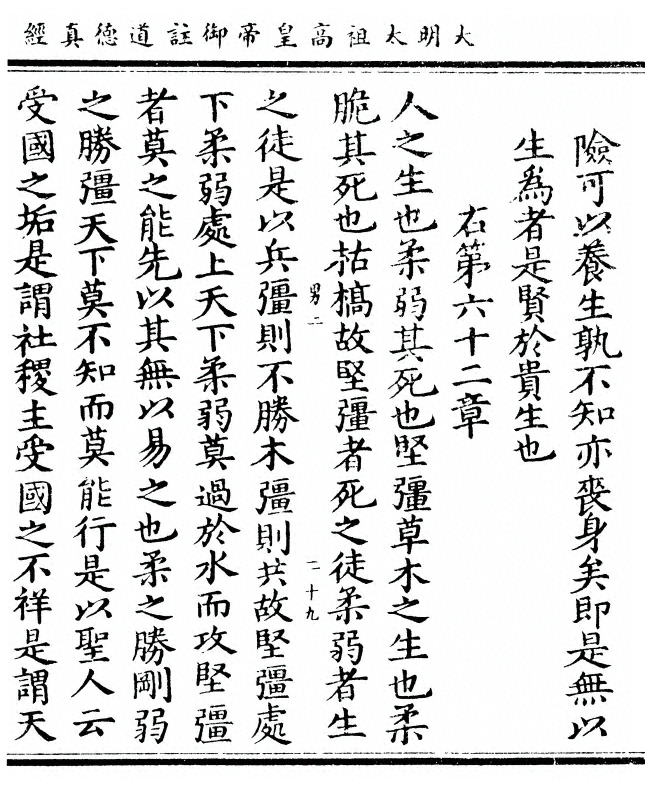 大明太祖高皇帝御註道德真經
險可以養生孰不知亦喪身矣即是無以
生為者是賢於貴生也
右第六十二章
人之生也柔弱其死也堅彊草木之生也柔
脆其死也枯槁故堅彊者死之徒柔弱者生
男二
二十九
之徒是以兵彊則不勝木彊則共故堅彊處
下柔弱處上天下柔弱莫過於水而攻堅彊
者莫之能先以其無以易之也柔之勝剛弱
之勝彊天下莫不知而莫能行是以聖人云
受國之垢是謂社稷主受國之不祥是謂天